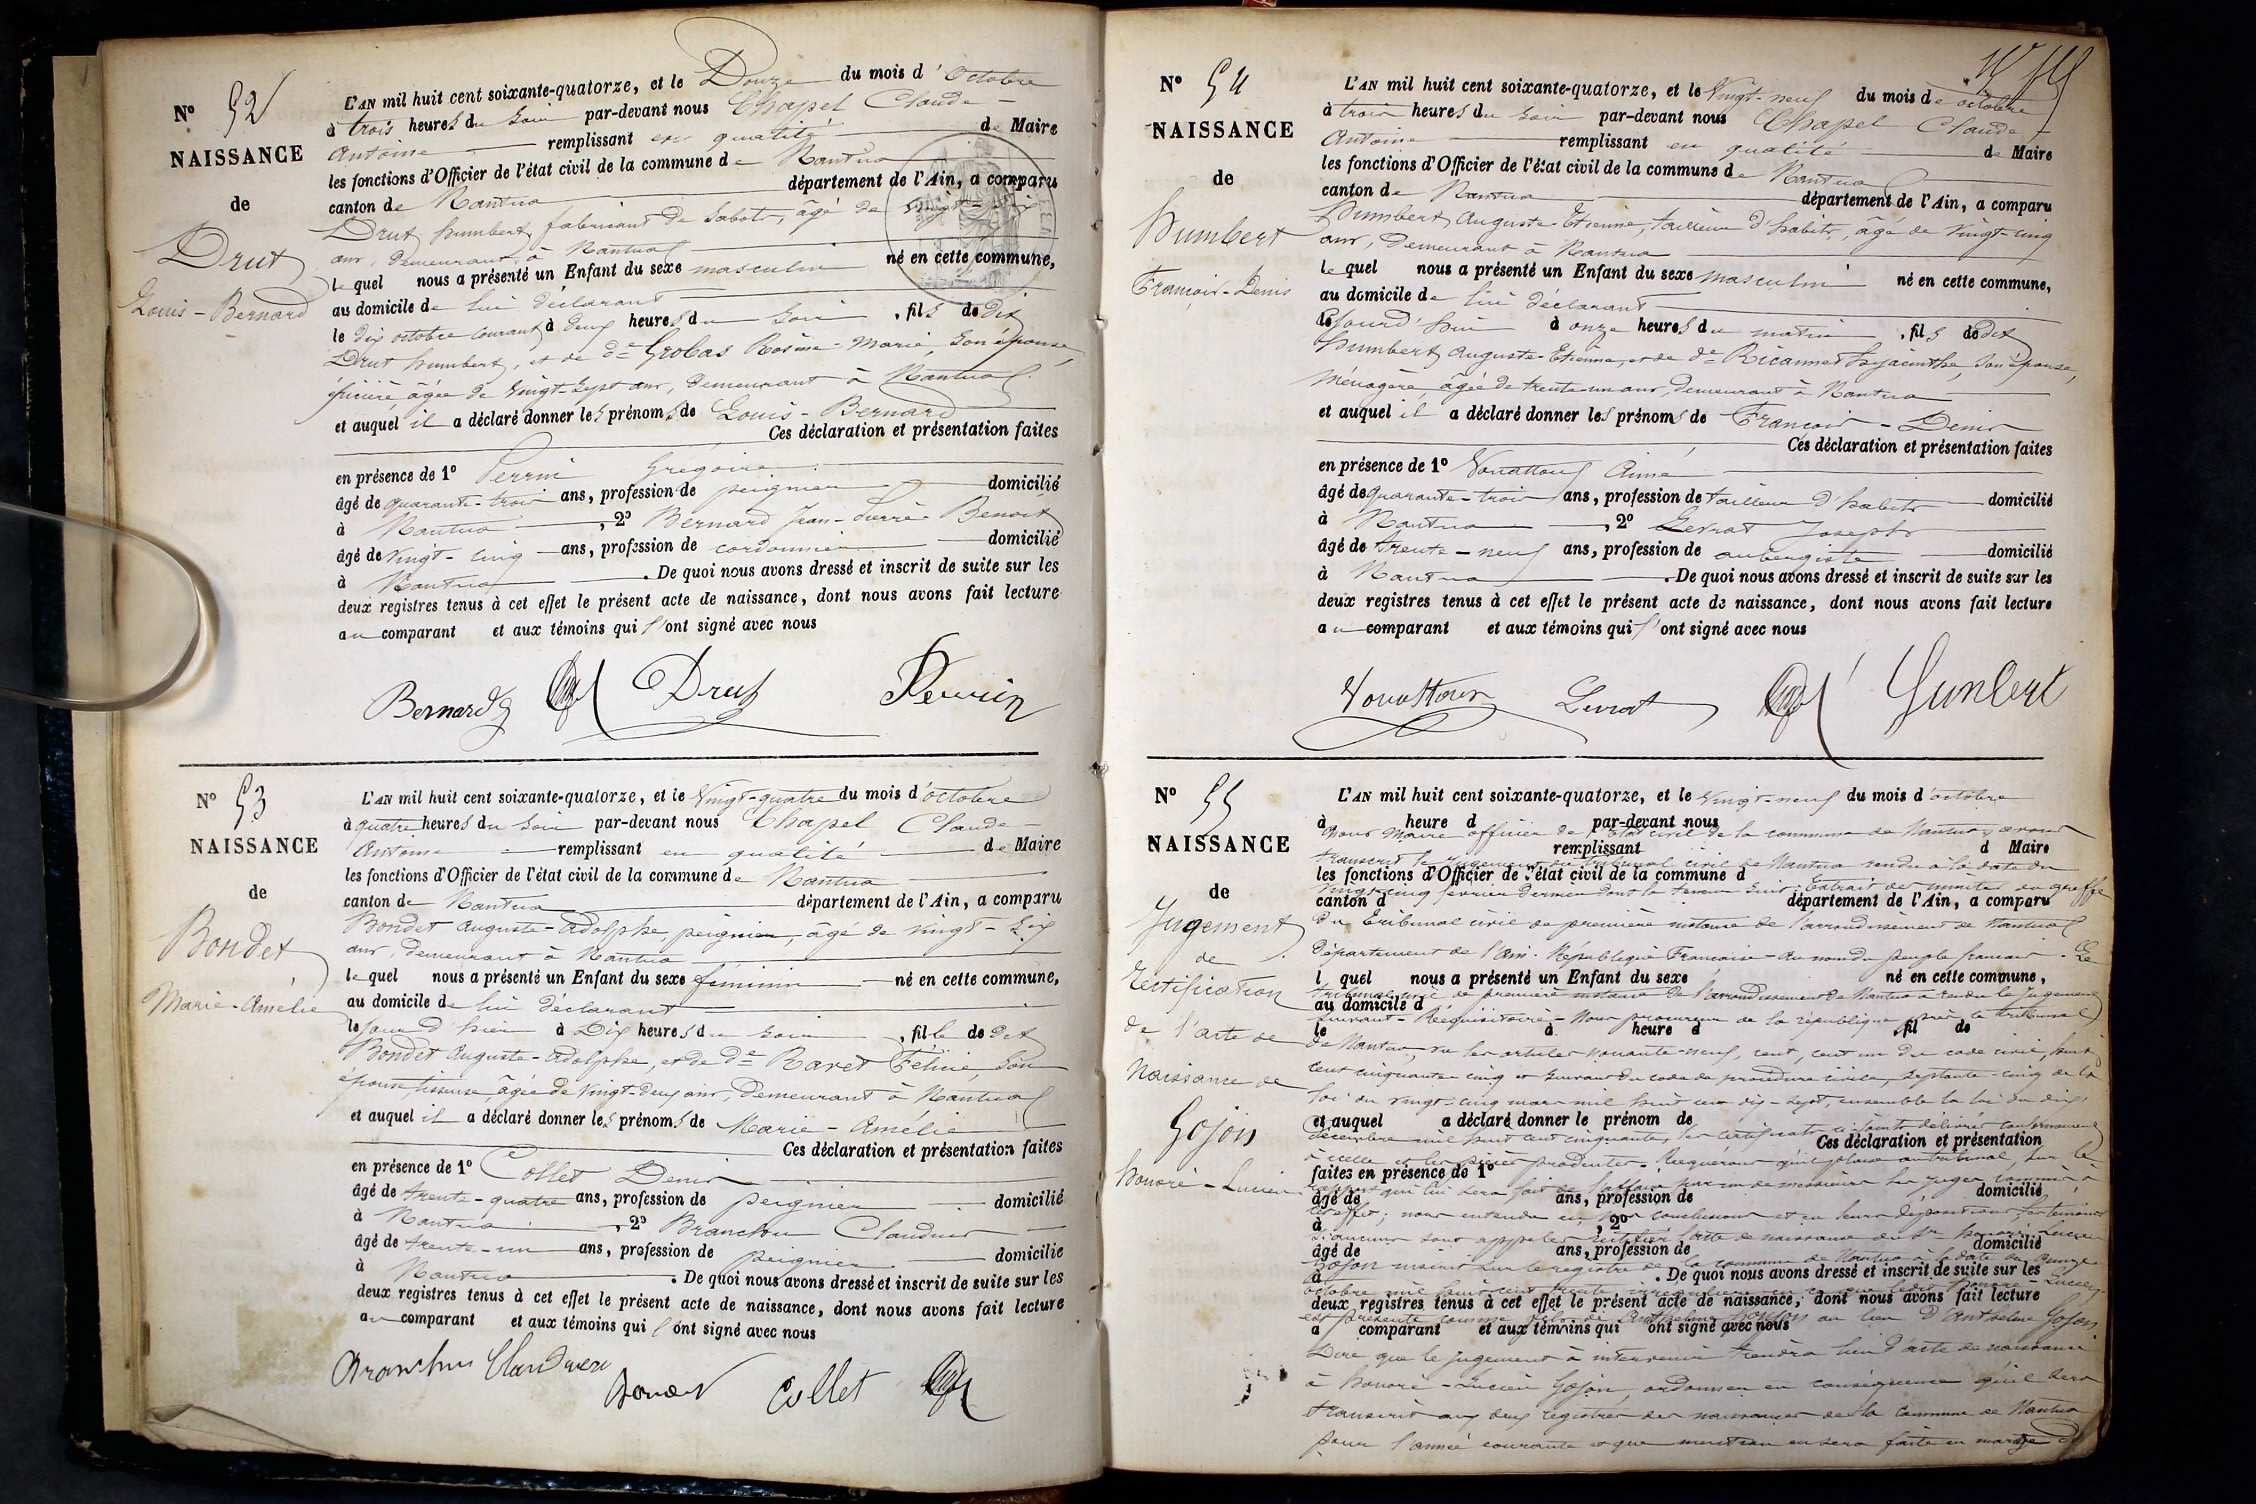 N° 52
NAISSANCE
de
Drut
Louis-Bernard
L'AN mil huit cent soixante-quatorze, et le Douze du mois d'Octobre
à trois heures du soir par-devant nous Chapel Claude-
Antoine remplissant en qualité de Maire
les fonctions d'Officier de l'état civil de la commune de Nantua
canton de Nantua département de l'Ain, a comparu
Drut humbert, fabricant de Sabots, âgé de vingt-six
ans, demeurant à Nantua
lequel nous a présenté un Enfant du sexe masculin né en cette commune,
au domicile de lui déclarant
le dix octobre courant à deux heures du soir, fils de dit
Drut humbert, et de de Grobas Rosine-Marie, son épouse,
épicière, âgée de vingt-sept ans, demeurant à Nantua
et auquel il a déclaré donner les prénoms de Louis-Bernard
Ces déclaration et présentation faites
en présence de 1° Perrin Grégoire
âgé de quarante-trois ans, profession de peignier domicilié
à Nantua, 2° Bernard Jean-Pierre Benoit
âgé de vingt-cinq ans, profession de cordonnier domicilié
à Nantua. De quoi nous avons dressé et inscrit de suite sur les
deux registres tenus à cet effet le présent acte de naissance, dont nous avons fait lecture
au comparant et aux témoins qui l'ont signé avec nous
Bernard Drut Perrin
N° 53
NAISSANCE
de
Bondet
Marie-Amélie
L'AN mil huit cent soixante-quatorze, et le Vingt-quatre du mois d'octobre
à quatre heures du soir par-devant nous Chapel Claude-
Antoine remplissant en qualité de Maire
les fonctions d'Officier de l'état civil de la commune de Nantua
canton de Nantua département de l'Ain, a comparu
Bondet Auguste-Adolphe, peignier, âgé de vingt-six
ans, demeurant à Nantua
lequel nous a présenté un Enfant du sexe féminin né en cette commune,
au domicile de lui déclarant
le jour d'hier à Dix heures du soir, fille de dit
Bondet Auguste-Adolphe, et de de Ravet Félicie, son
épouse, tisseuse, âgée de vingt-deux ans, demeurant à Nantua
et auquel il a déclaré donner les prénoms de Marie-Amélie
Ces déclaration et présentation faites
en présence de 1° Collet Denis
âgé de trente-quatre ans, profession de peignier domicilié
à Nantua, 2° Branchu Claudius
âgé de trente-un ans, profession de peignier domicilié
à Nantua. De quoi nous avons dressé et inscrit de suite sur les
deux registres tenus à cet effet le présent acte de naissance, dont nous avons fait lecture
au comparant et aux témoins qui l'ont signé avec nous
Collet
N° 54
NAISSANCE
de
Humbert
François-Denis
L'AN mil huit cent soixante-quatorze, et le Vingt-neuf du mois de octobre
à trois heures du soir par-devant nous Chapel Claude-
Antoine remplissant en qualité de Maire
les fonctions d'Officier de l'état civil de la commune de Nantua
canton de Nantua département de l'Ain, a comparu
Humbert Auguste-Etienne, tailleur d'habits, âgé de vingt-cinq
ans, demeurant à Nantua
lequel nous a présenté un Enfant du sexe masculin né en cette commune,
au domicile de lui déclarant
à onze heures du matin, fils de dit
Humbert Auguste-Etienne, et de de Hyacinthe, son épouse,
Ménagère, âgée de trente-un ans, demeurant à Nantua
et auquel il a déclaré donner les prénoms de François-Denis
Ces déclaration et présentation faites
en présence de 1° Aimé
âgé de quarante-trois ans, profession de tailleur d'habits domicilié
à Nantua, 2° Levrat Joseph
âgé de trente-neuf ans, profession de aubergiste domicilié
à Nantua. De quoi nous avons dressé et inscrit de suite sur les
deux registres tenus à cet effet le présent acte de naissance, dont nous avons fait lecture
au comparant et aux témoins qui l'ont signé avec nous
Levrat Humbert
N° 55
NAISSANCE
de
Jugement
de
rectification
de l'acte de
Naissance de
Gojon
honoré-Lucien
L'AN mil huit cent soixante-quatorze, et le vingt-neuf du mois d'octobre
à heure d par-devant nous
Nous Maire officier de l'Etat civil de la commune de Nantua avons
remplissant d Maire
transcrit le jugement du tribunal civil de Nantua rendu à la date du
les fonctions d'Officier de l'état civil de la commune d
vingt-cinq février dernier dont la teneur suit: Extrait des minutes du greffe
canton d département de l'Ain, a comparu
du Tribunal civil de première instance de l'arrondissement de Nantua
Département de l'Ain. République Française-Au nom du peuple français. Le
l quel nous a présenté un Enfant du sexe né en cette commune,
tribunal civil de première instance de l'arrondissement de Nantua a rendu le jugement
au domicile d
suivant-Réquisitoire-Nous procureur de la république près le tribunal
le à heure d fil de
de Nantua, vu les articles nonante-neuf, cent, cent un du code civil, huit
cent cinquante-cinq et suivants du code de procédure civile, septante-cinq de la
loi du vingt-cinq mars mil huit cent dix-sept, ensemble la loi du dix
et auquel a déclaré donner le prénom de
décembre mil huit cent cinquante, les certificats ci-joints délivrés conformément
Ces déclaration et présentation
à celle et les pièces produites. Requérons qu'il plaise au tribunal, sur le
faites en présence de 1°
rapport qui lui sera fait de l'affaire par un de messieurs les juges commis à
âgé de ans, profession de domicilié
cet effet; nous entendu en nos conclusions et en leurs dépositions, les témoins
à , 2°
âgé de ans, profession de domicilié
Gojon inscrit sur le registre de la commune de Nantua à la date du
à . De quoi nous avons dressé et inscrit de suite sur les
deux registres tenus à cet effet le présent acte de naissance, dont nous avons fait lecture
au lieu d'Anthelme Gojon
a comparant et aux témoins qui ont signé avec nous
Dire que le jugement à intervenir tiendra lieu d'acte de naissance
à honoré-Lucien Gojon, ordonner en conséquence qu'il sera
transcrit aux deux registres des naissances de la commune de Nantua
pour l'année courante et que mention en sera faite en marge